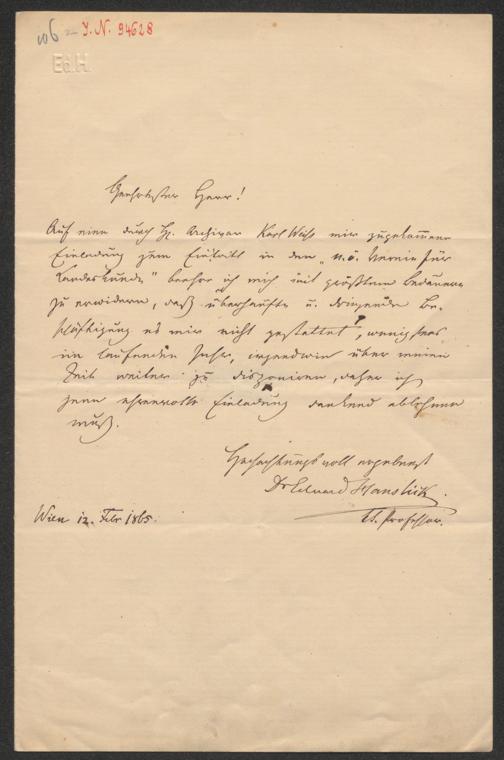 106 J. N. 94628
Ed. H.
Geehrtester Herr!
Auf eine durch H. Archivar Karl Weiß mir zugekommene
Einladung zum Eintritt in den „n. ö. Verein für
Landeskunde" beehre ich mich mit größtem Bedauern
zu erwidern, daß überhäufte u. dringende Be-
schäftigung es mir nicht gestattet, wenigstens
im laufenden Jahr, irgendwie über meine
Zeit weiter zu disponiren, daher ich
jene ehrenvolle Einladung dankend ablehnen
muß.
Hochachtungsvoll ergebenst
Dr Eduard Hanslick.
Professor.
Wien 12. Febr 1865.